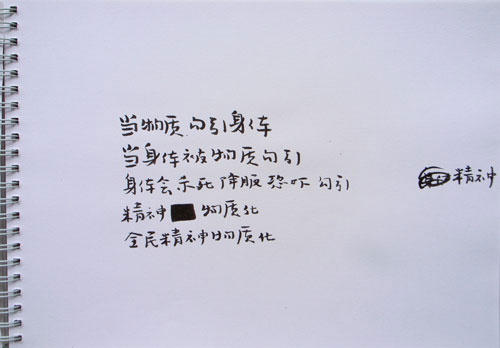 当物质勾引身体
当身体被物质勾引
身体会杀死降服恐吓勾引
精神物质化
全民精神物质化
精神